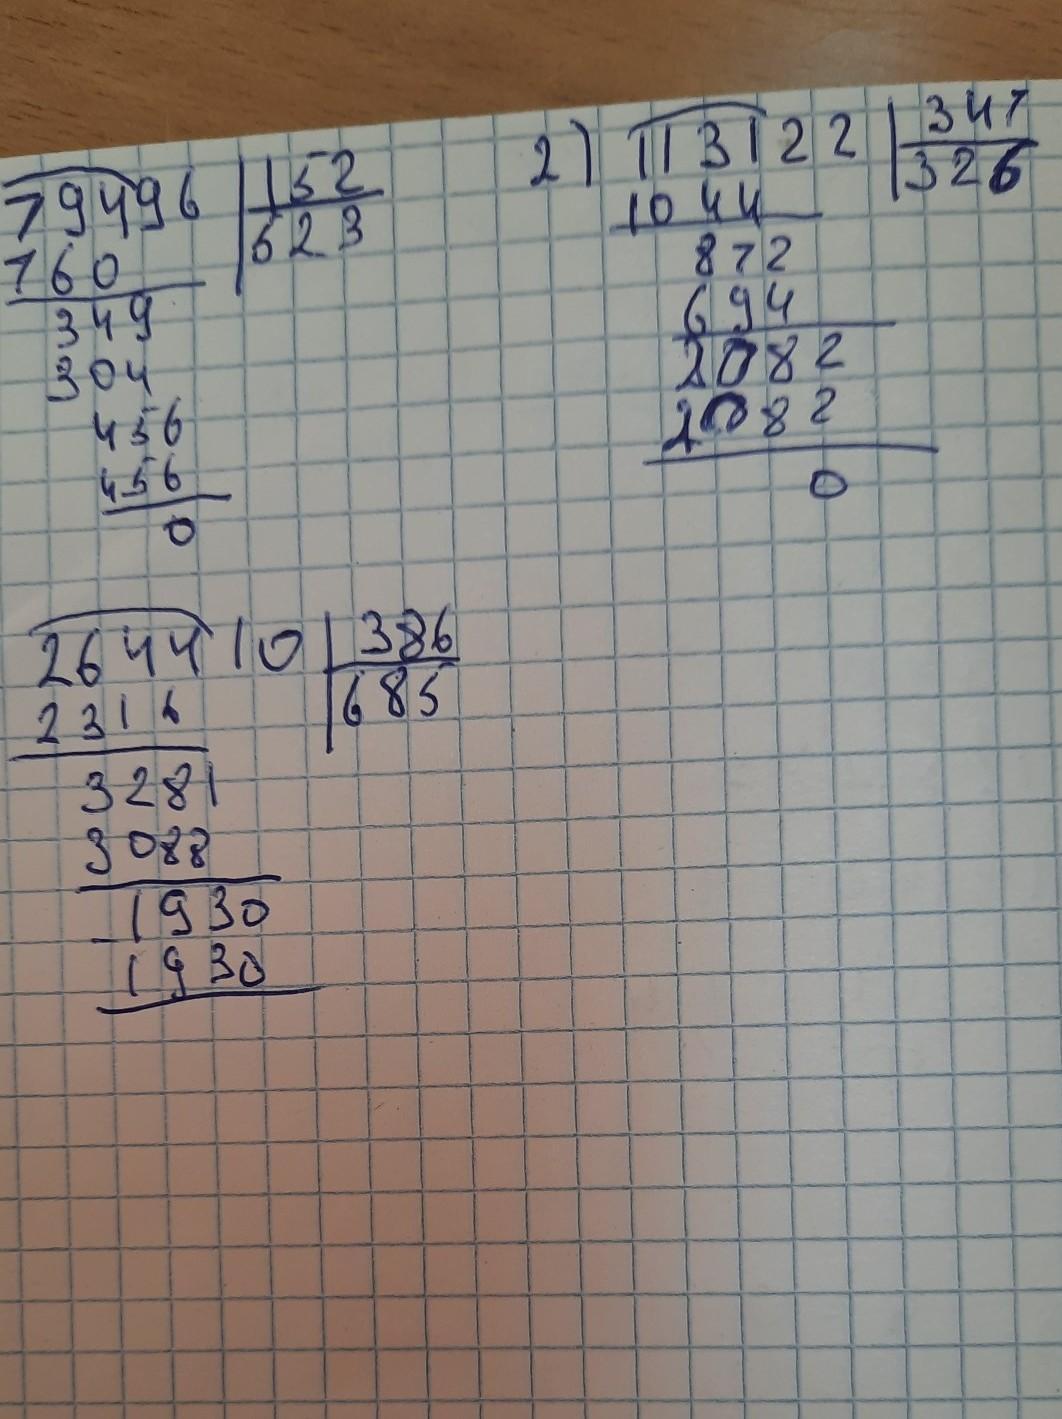 79496 152
523
760
349
304
456
456
0
2) 113122 347
326
1044
872
694
2082
2082
0
264410 386
685
2316
3281
3088
1930
1930